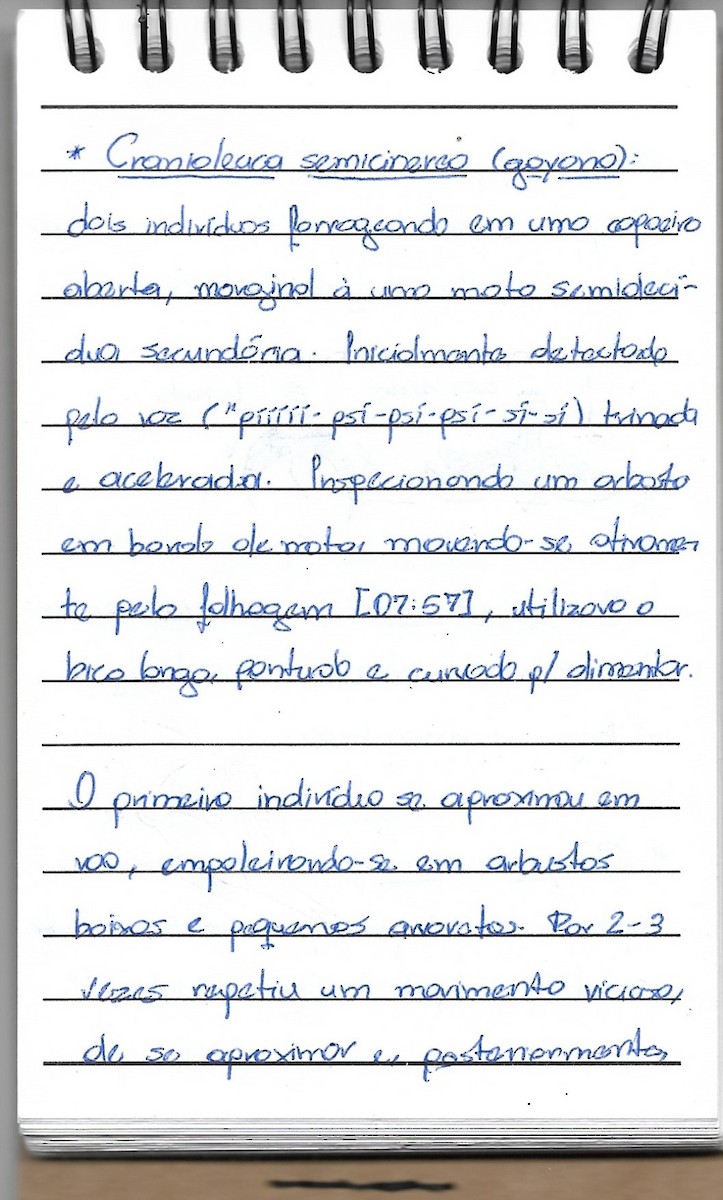 * Cranioleuca semicinerea (goyana):
dois indivíduos forrageando em uma capoeira
aberta, marginal à uma mata semideci-
dua secundária. Inicialmente detectado
pela voz ("piíííí-psí-psí-psí-sí-sí) trinada
e acelerada. Inspecionando um arbusto
em borda de mata, movendo-se ativamen-
te pela folhagem [07:57], utilizava o
bico longo, pontudo e curvado p/ alimentar.
O primeiro indivídio se aproximou em
voo, empoleirando-se em arbustos
baixos e pequenas arvoretas. Por 2-3
vezes repetiu um movimento vicioso,
de se aproximar e, posteriormente,